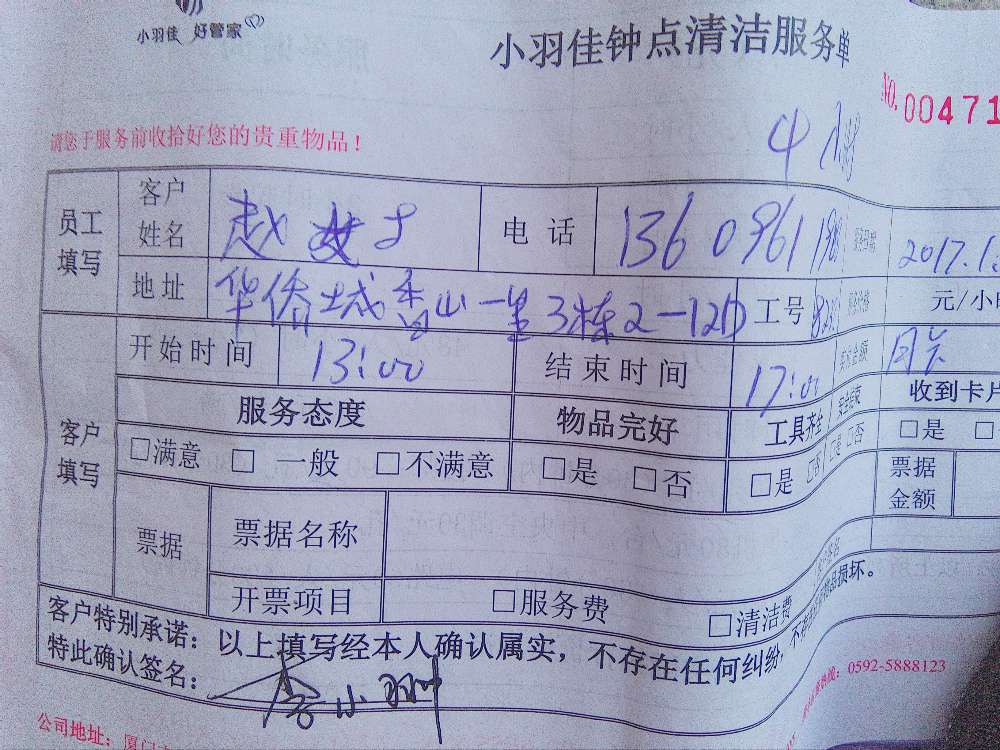 小羽佳 好管家
小羽佳钟点清洁服务单
NO. 00471
请您于服务前收拾好您的贵重物品！
4小时
员工填写 客户姓名 赵女士 电话 1360961
2017.1
地址 华侨城香山一里3栋2-12D 工号 元/小
开始时间 13:00 结束时间 17:00 实收金额 月卡
服务态度 物品完好 工具齐全 收到卡片
客户填写 □满意 □一般 □不满意 □是 □否 □是 □否 □是 □
票据 票据名称 票据金额
开票项目 □服务费 □清洁费
客户特别承诺：以上填写经本人确认属实，不存在任何纠纷，不存在任何物品损坏。
特此确认签名：
公司地址：厦门
0592-5888123